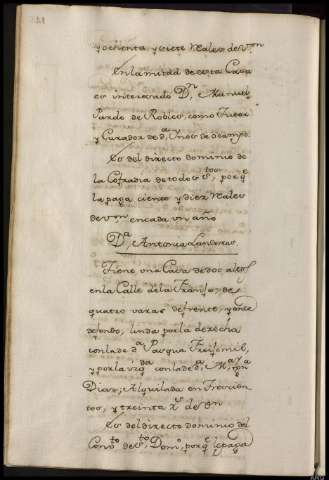 y ochenta y siete Reales de v.on
En la mitad de esta Casa
es interesado D.n Manuel
Pardo de Robles, como Tutor
y Curador de d.a Ines de Ocampo
Es del directo dominio de
la Cofradia de todos S.tos, por q.e
la paga ciento y diez Reales
de v.on en cada un año
D.a Antonia Landeras
Tiene una Casa de dos altos
en la Calle de la Franja, de
quatro varas de frente, y once
de fondo, linda por la derecha
con la de d.a Pasqua
y por la izq.da con la de d.a M.a
Dias; Alquilada en Trecien
tos, y treinta R.s de v.on
Es del directo dominio del
Conv.to de S.to Dom.o, por q.e le paga